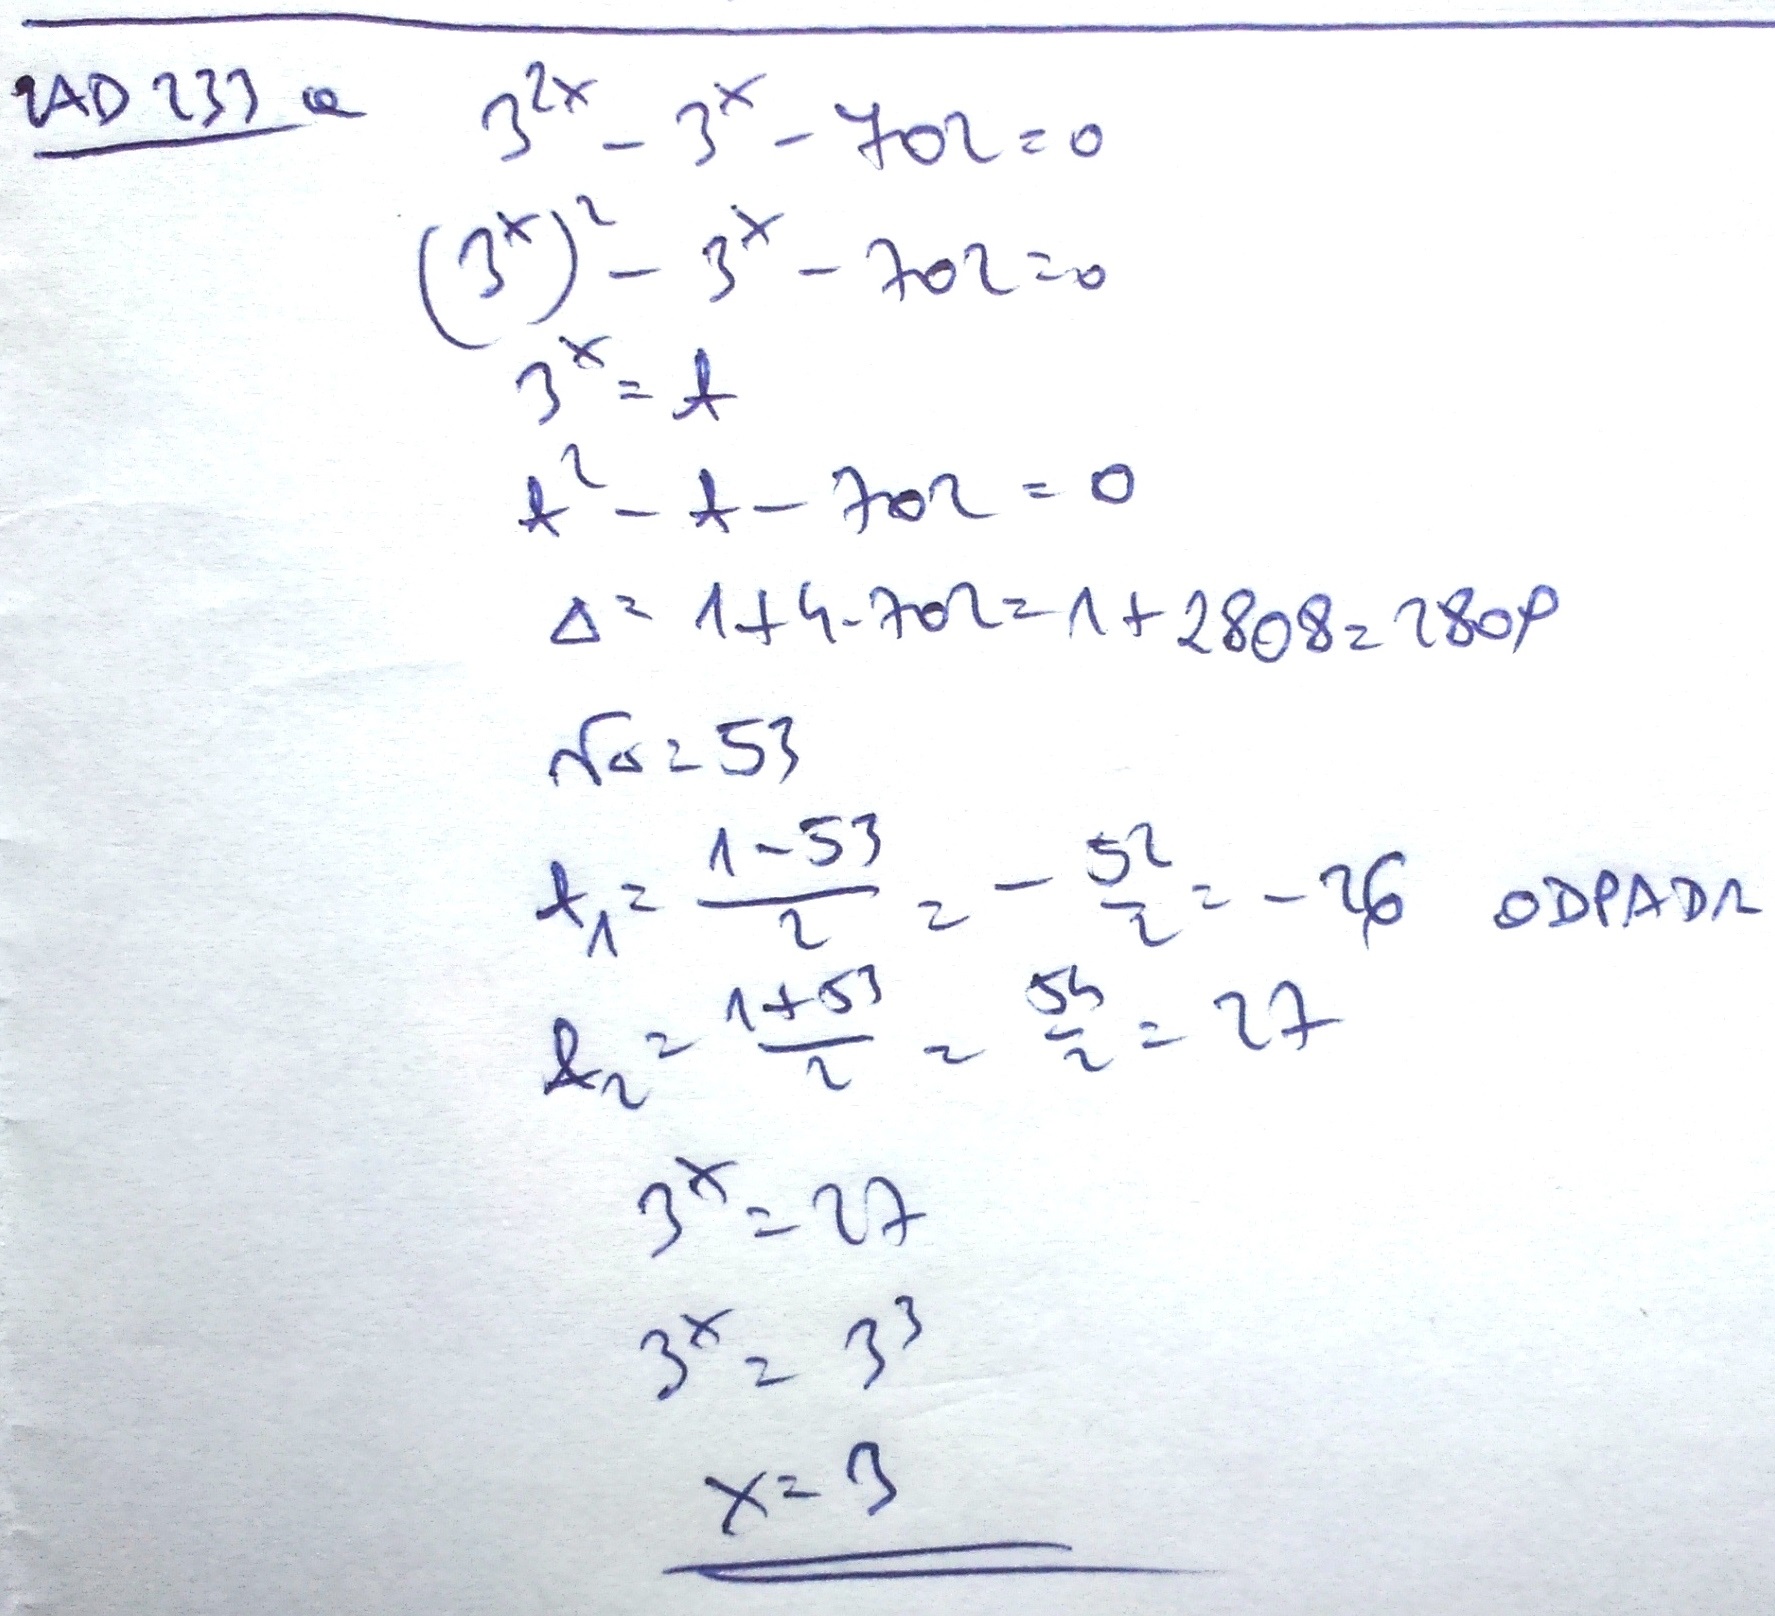 ZAD 233 a 3^{2x} - 3^x - 702 = 0
(3^x)^2 - 3^x - 702 = 0
3^x = t
t^2 - t - 702 = 0
Δ = 1 + 4·702 = 1 + 2808 = 2809
√Δ = 53
t_1 = \frac{1-53}{2} = -\frac{52}{2} = -26 ODPADA
t_2 = \frac{1+53}{2} = \frac{54}{2} = 27
3^x = 27
3^x = 3^3
x = 3